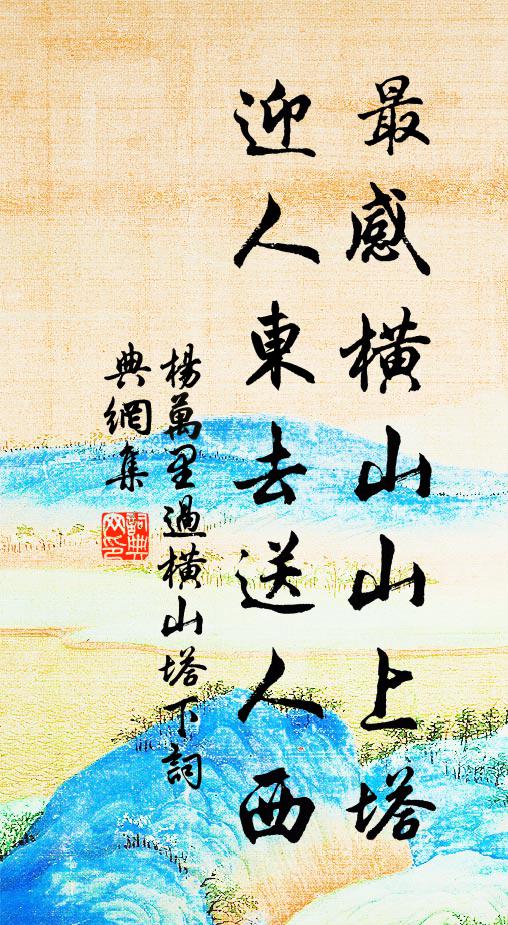 最感橫山山上塔
迎人東去送人西
楊萬里過橫山塔下詞
典網集
詞典網印